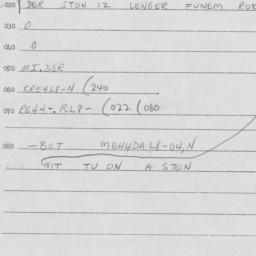 020 DER STON IZ LENGER FUNEM ROK
030 0
040 0
050 MI.D3R
060 KRE4LP-N (240
070 PE44-.RLP- (022 (080
080 -BUT ME44DALP-04,N
NIT TU ON A STON